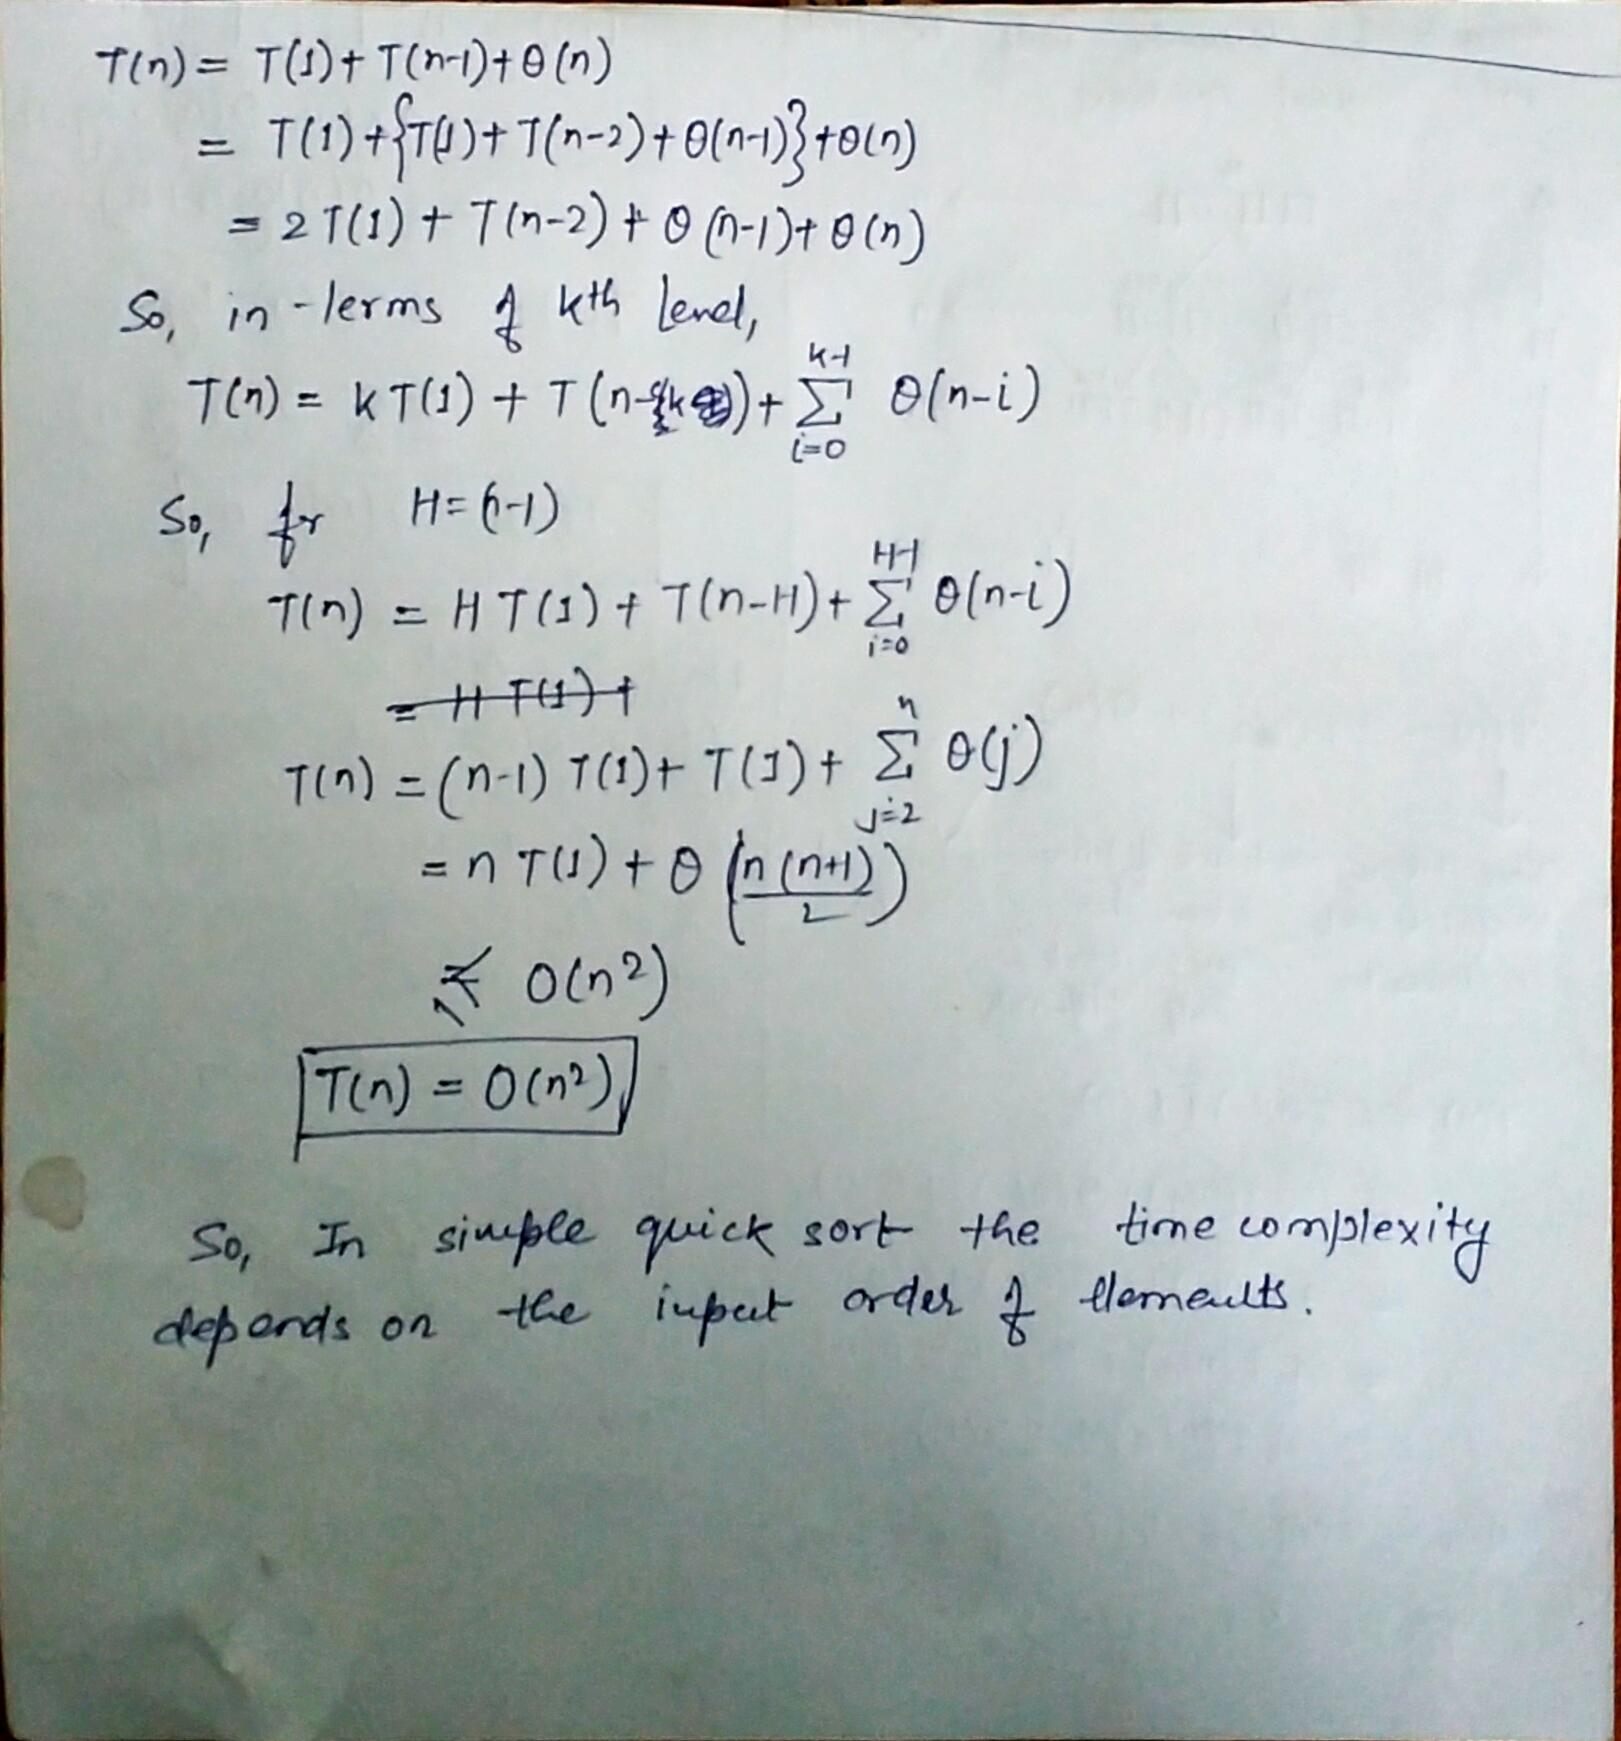 T(n) = T(1) + T(n-1) + θ(n)
= T(1) + {T(1) + T(n-2) + θ(n-1)} + θ(n)
= 2T(1) + T(n-2) + θ(n-1) + θ(n)
So, in-terms of kth level,
T(n) = kT(1) + T(n-k) + Σ_{i=0}^{k-1} θ(n-i)
So, for H = (n-1)
T(n) = H T(1) + T(n-H) + Σ_{i=0}^{H-1} θ(n-i)
= H T(1) +
T(n) = (n-1) T(1) + T(1) + Σ_{j=2}^{n} θ(j)
= n T(1) + θ(n(n+1)/2)
O(n²)
T(n) = O(n²)
So, In simple quick sort the time complexity
depends on the input order of elements.